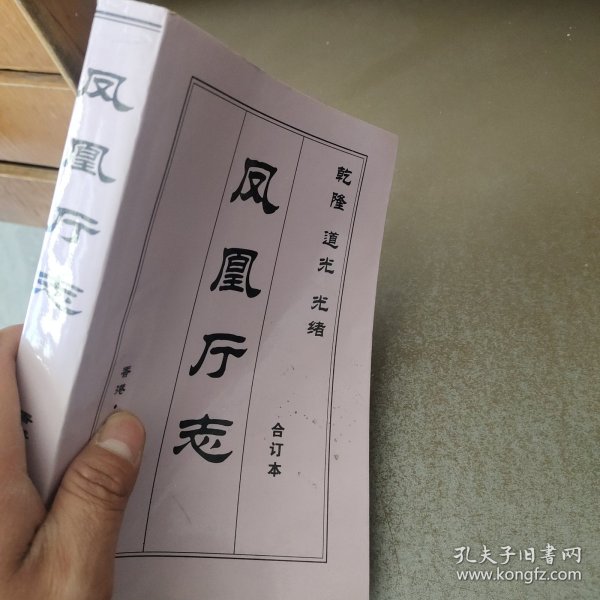 凤凰厅志
乾隆 道光 光绪
凤凰厅志
合订本
香港
孔夫子旧书网
www.kongfz.com